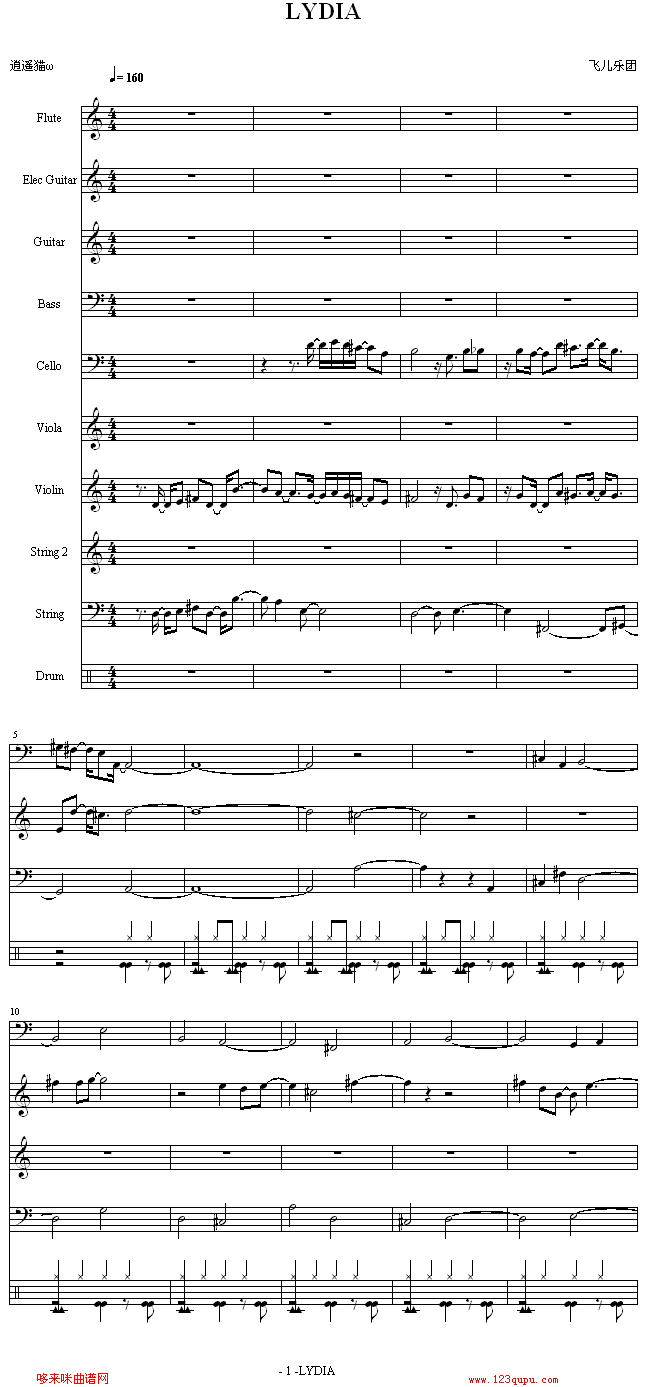 LYDIA
逍遥猫ω
飞儿乐团
= 160
Flute
Elec Guitar
Guitar
Bass
Cello
Viola
Violin
String 2
String
Drum
5
10
哆来咪曲谱网
- 1 -LYDIA
www.123qupu.com